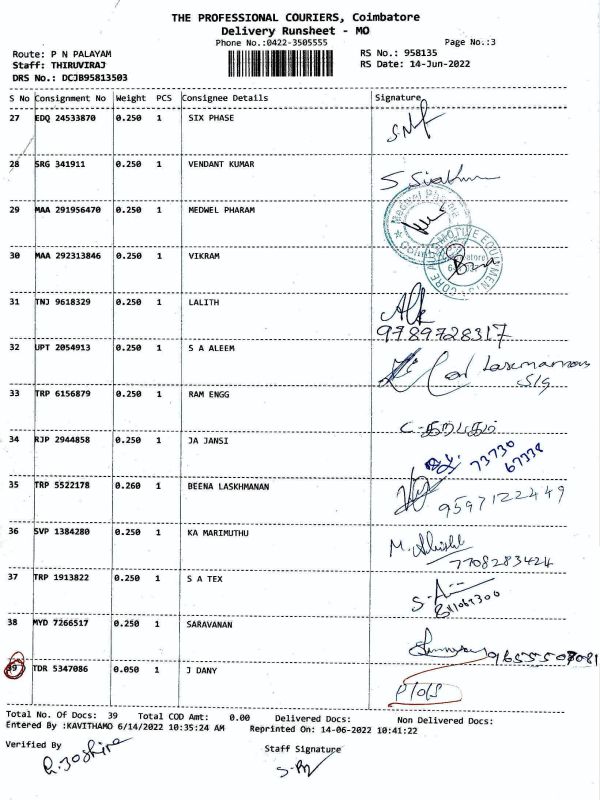 THE PROFESSIONAL COURIERS, Coimbatore
Delivery Runsheet - MO
Phone No.:0422-3505555 Page No.:3
Route: P N PALAYAM RS No.: 958135
Staff: THIRUVIRAJ RS Date: 14-Jun-2022
DRS No.: DCJB95813503
S No Consignment No Weight PCS Consignee Details Signature
27 EDQ 24533870 0.250 1 SIX PHASE
28 SRG 341911 0.250 1 VENDANT KUMAR
29 MAA 291956470 0.250 1 MEDWEL PHARAM
30 MAA 292313846 0.250 1 VIKRAM
31 TNJ 9618329 0.250 1 LALITH
9789728317
32 UPT 2054913 0.250 1 S A ALEEM
33 TRP 6156879 0.250 1 RAM ENGG
34 RJP 2944858 0.250 1 JA JANSI
73730
67338
35 TRP 5522178 0.260 1 BEENA LASKHMANAN
9597122449
36 SVP 1384280 0.250 1 KA MARIMUTHU
7708283424
37 TRP 1913822 0.250 1 S A TEX
38 MYD 7266517 0.250 1 SARAVANAN
39 TDR 5347086 0.050 1 J DANY
Total No. Of Docs: 39 Total COD Amt: 0.00 Delivered Docs: Non Delivered Docs:
Entered By :KAVITHAMO 6/14/2022 10:35:24 AM Reprinted On : 14-06-2022 10:41:22
Verified By Staff Signature